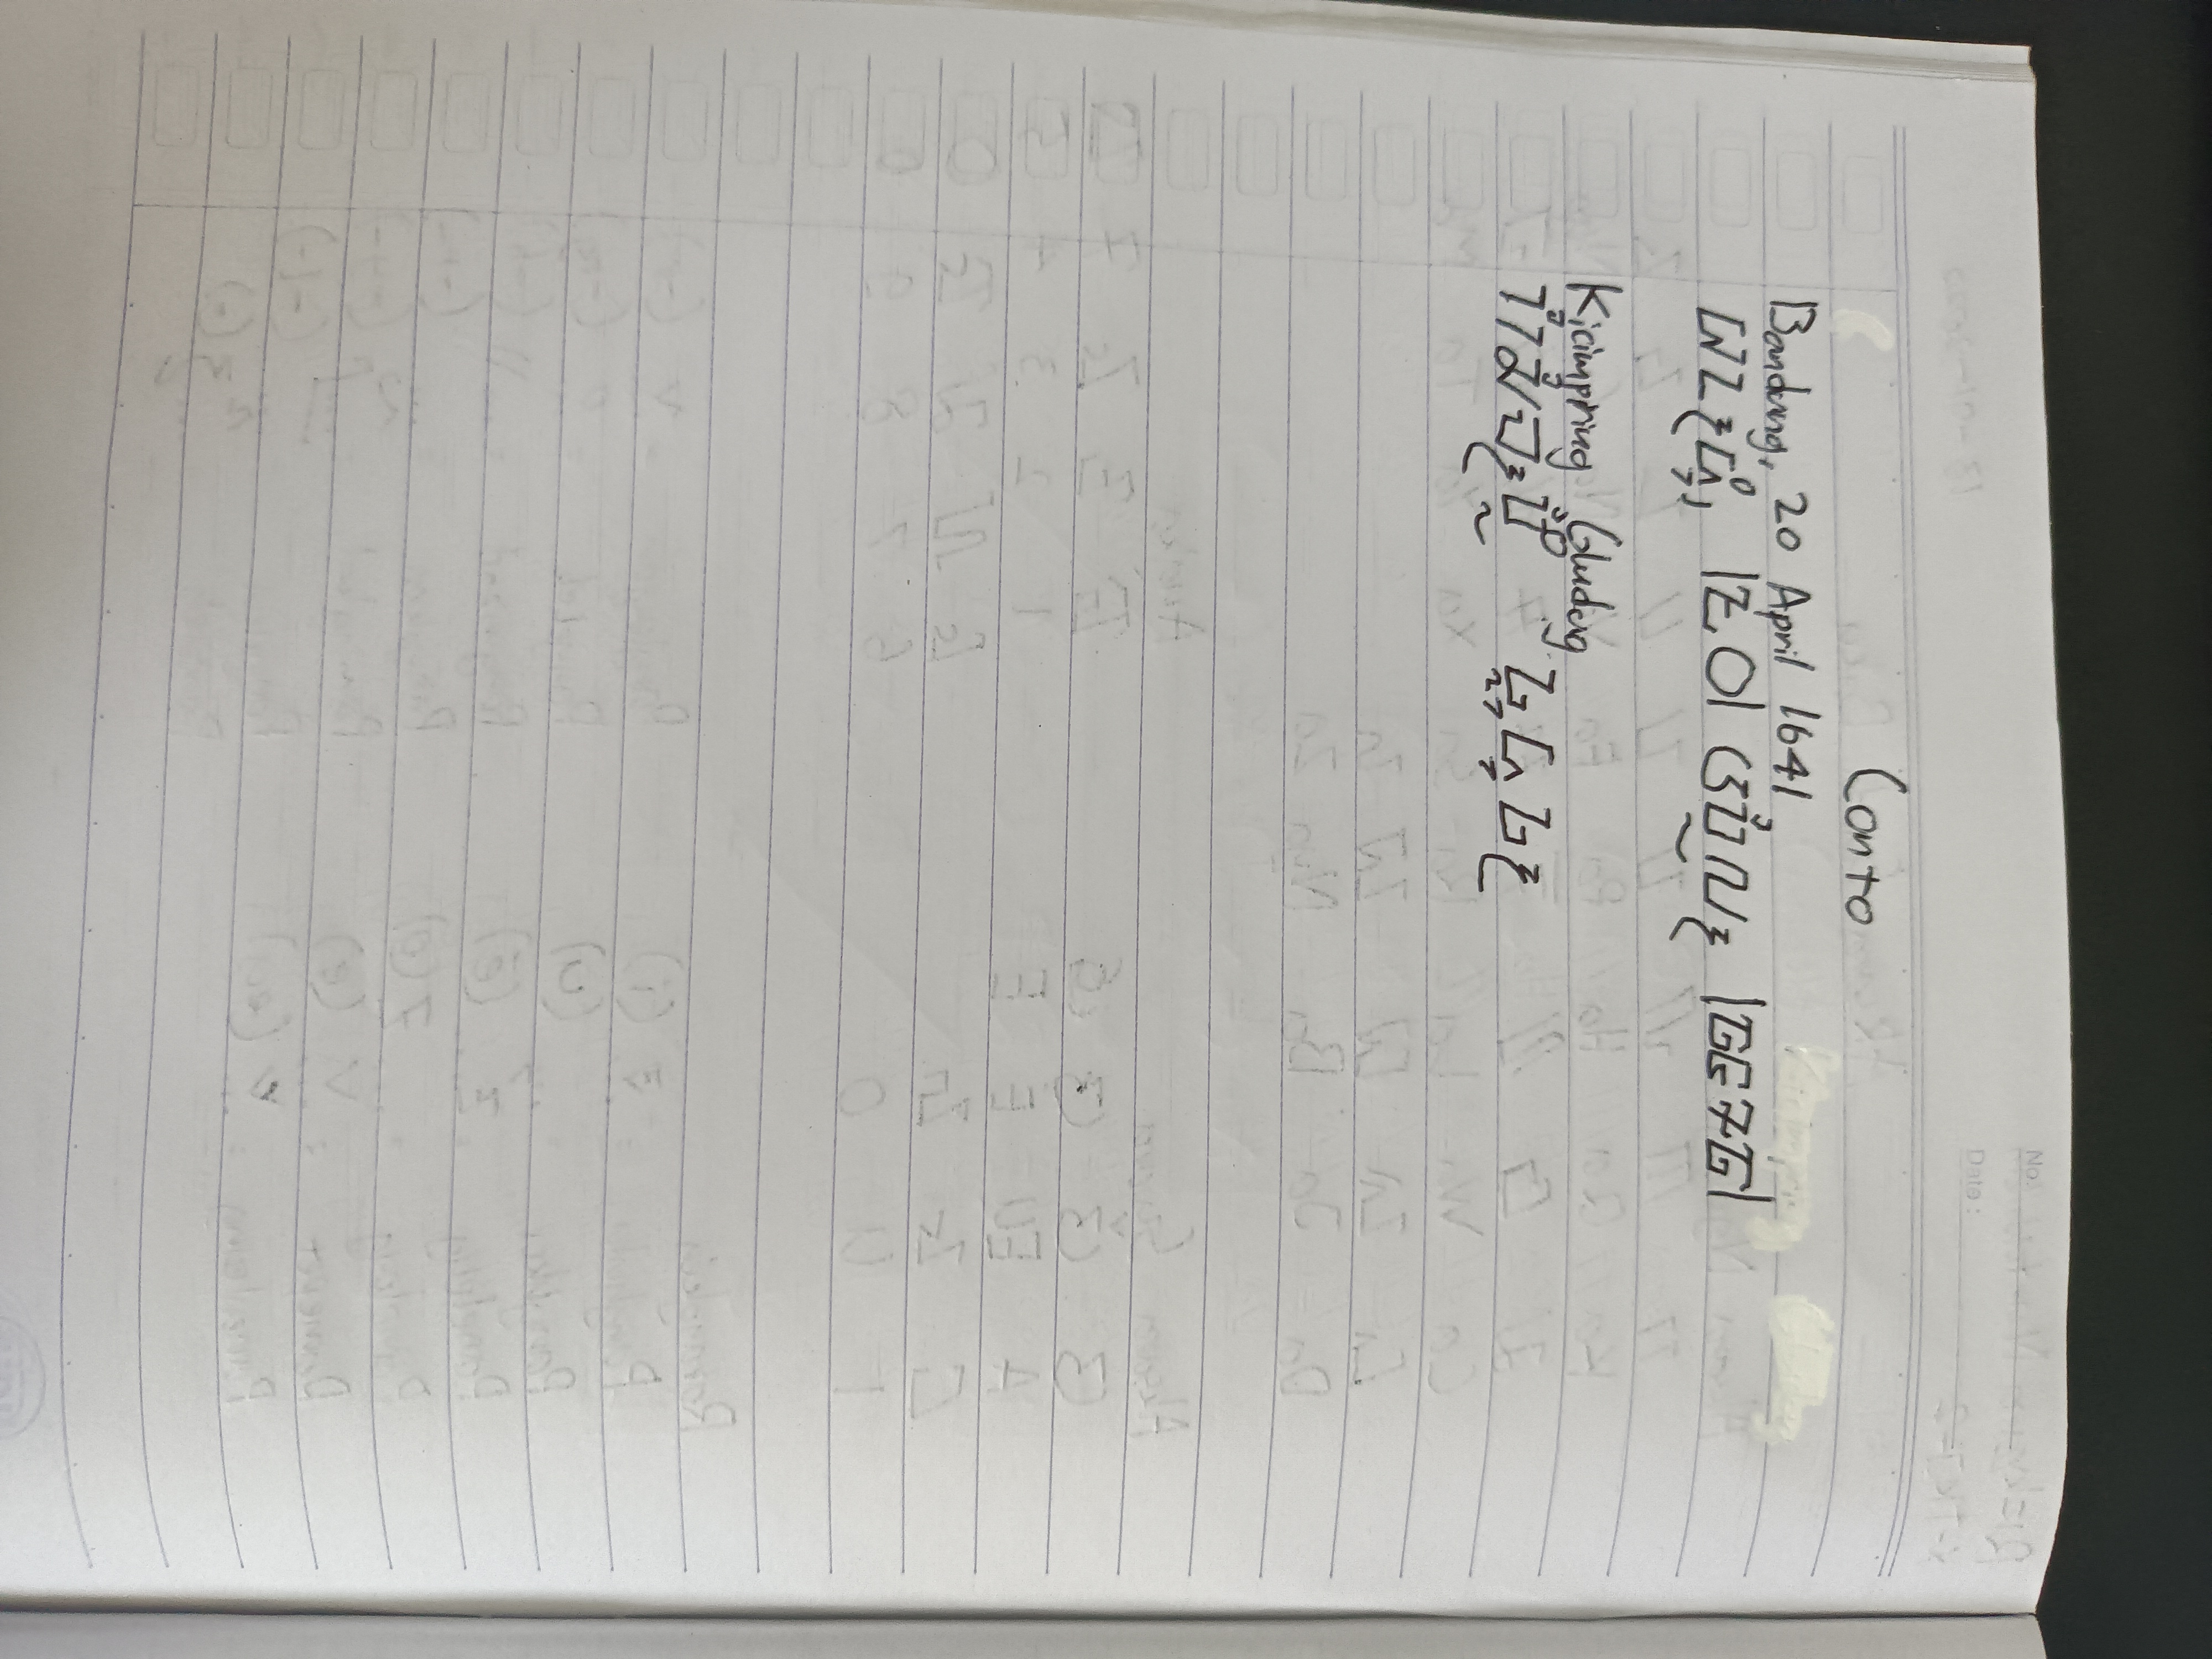 No.
Date :
Conto
Bandung, 20 April 1641,
ᮘᮔ᮪ᮓᮥᮀ, |᮲᮰| ᮃᮕᮢᮤᮜ᮪ |᮱᮶᮴᮱|
Kicimpring Gludug
ᮊᮤᮎᮤᮙ᮪ᮕᮢᮤᮀ ᮌᮣᮥᮓᮥᮌ᮪